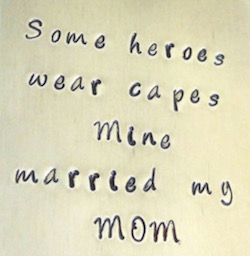 Some heroes
wear capes
Mine
married my
MOM